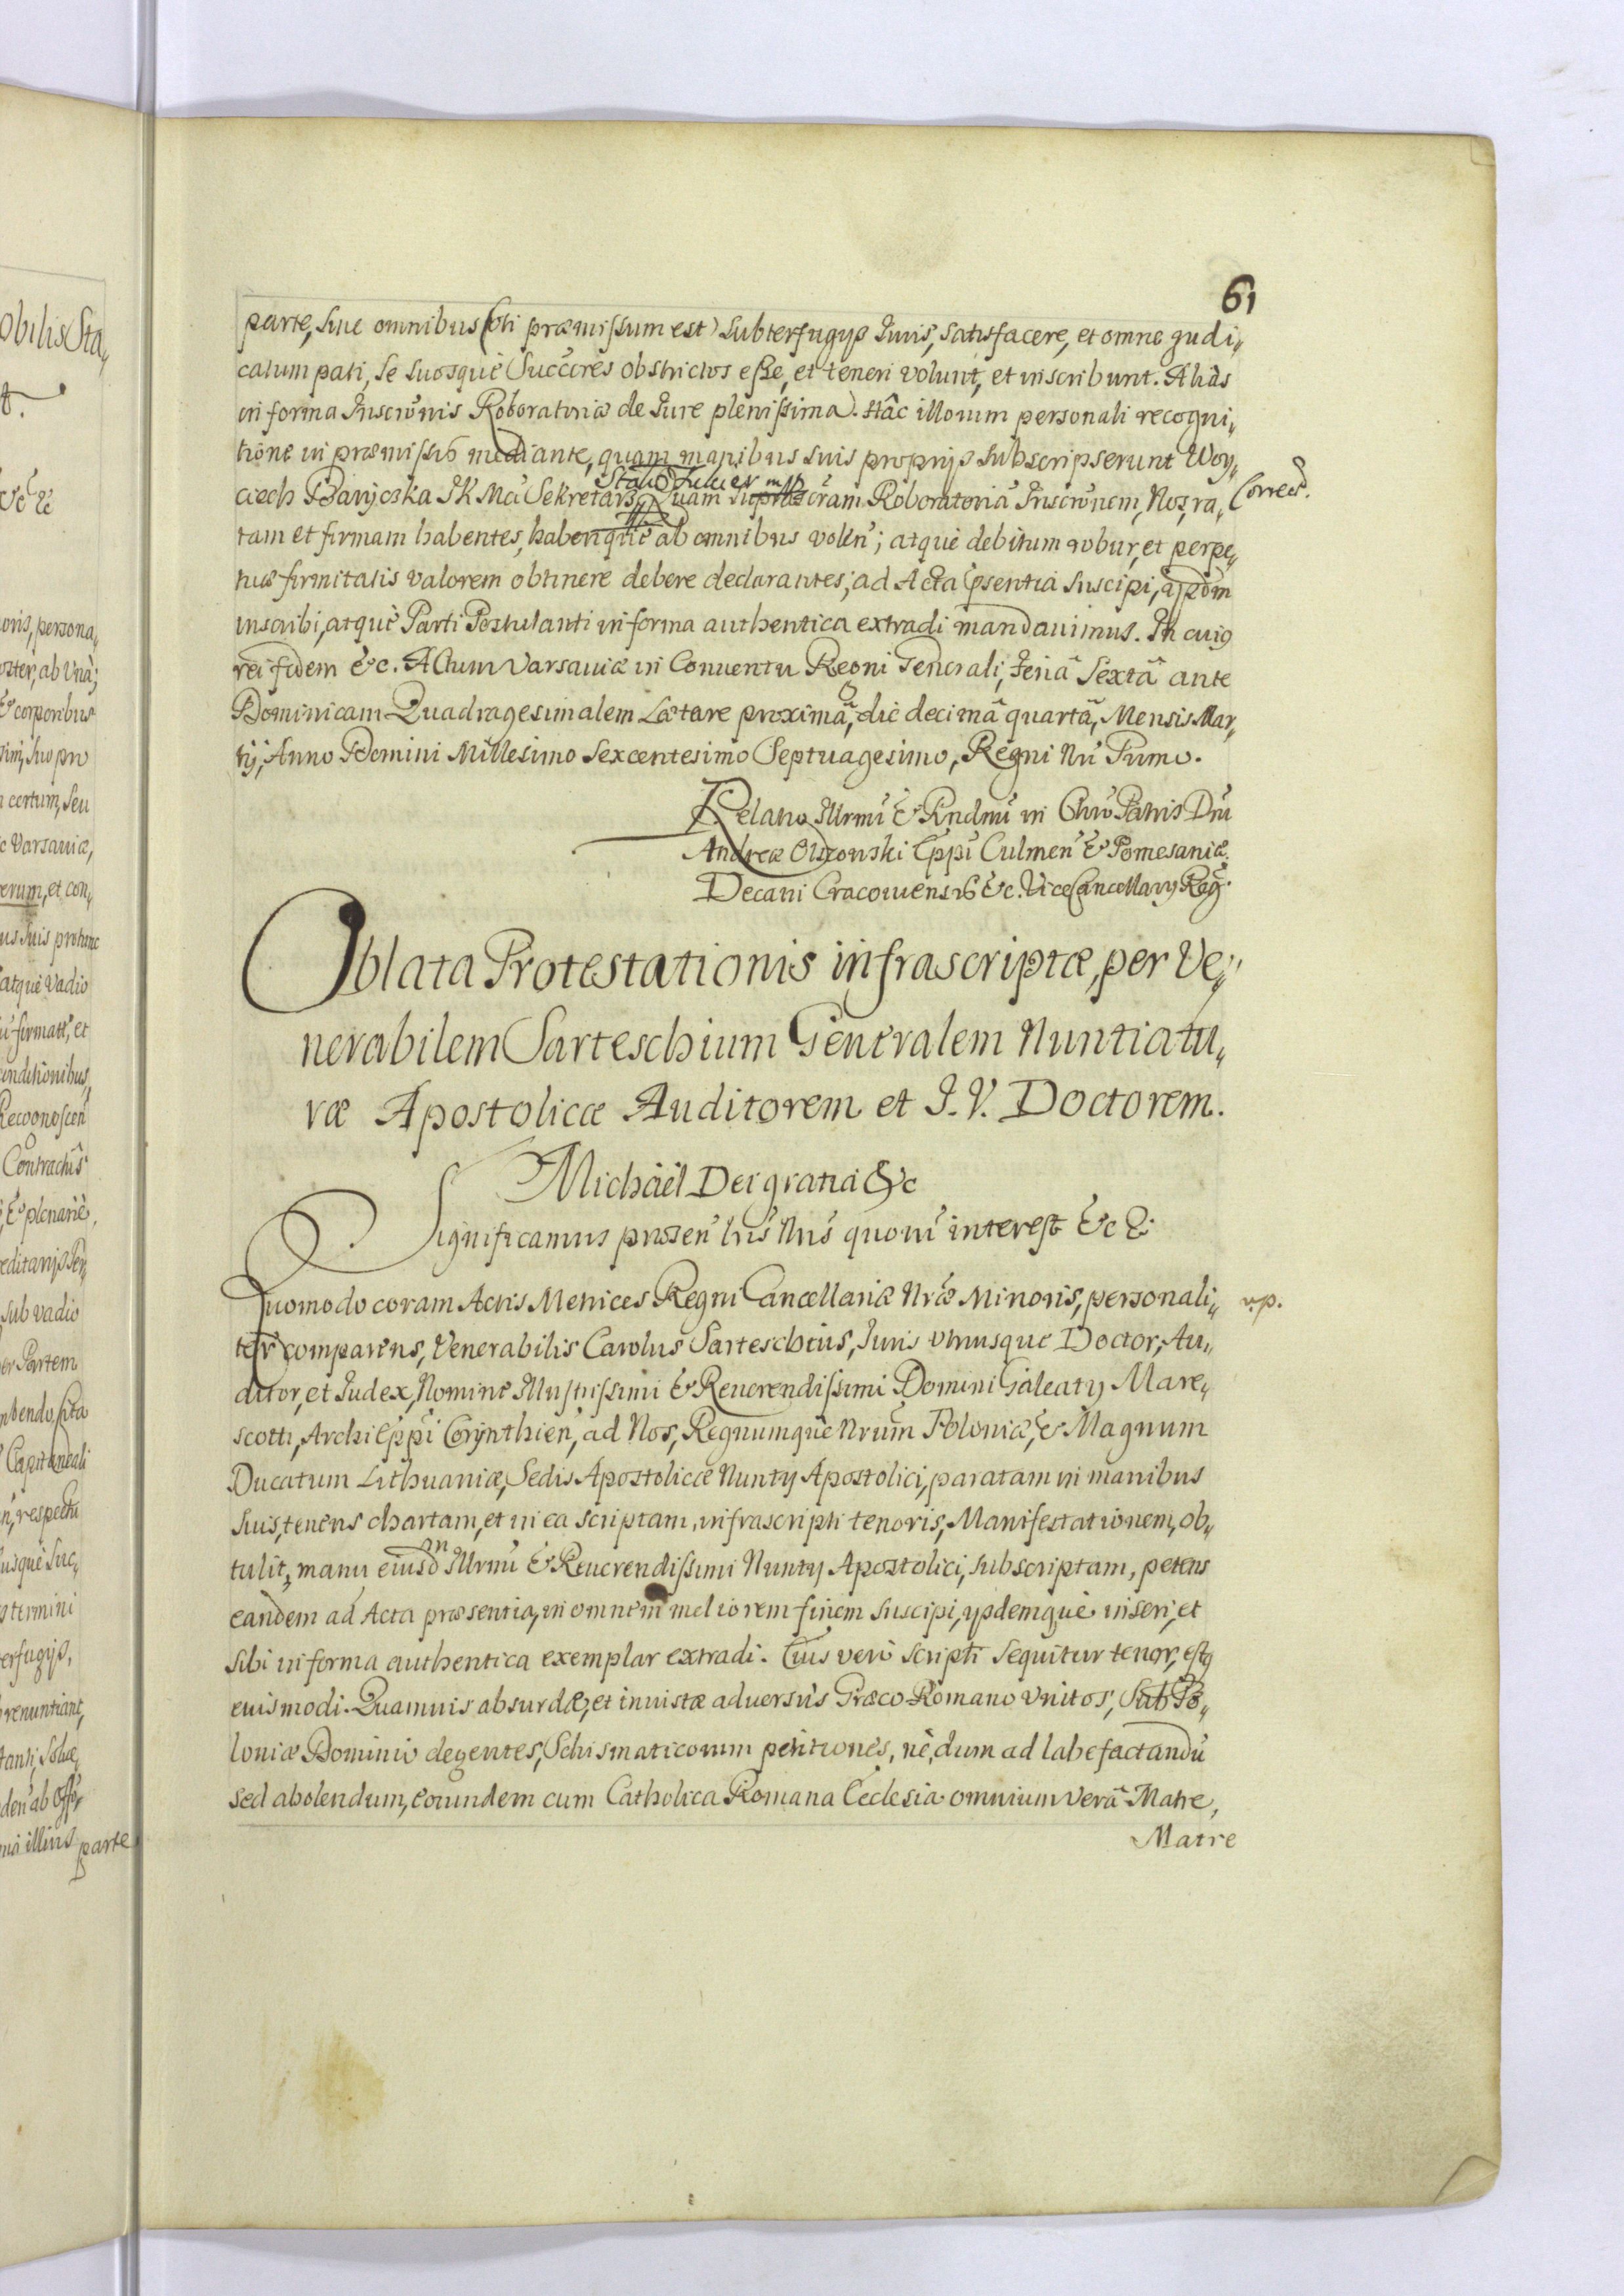 61
parte, sine omnibus (uti præmissum est) subterfugijs Iuris, satisfacere, et omne judi„
catum pati, se suosque Succeres obstrictos esse, et teneri volunt, et inscribunt. Aliàs
in forma Inscrõnis Roboratoriæ de Iure plenissima. Hâc illorum personali recogni„
tione in præmissis mediante, quam manibus suis proprijs subscripserunt Woy„
Stani
ciech Baryczka JK Mci Sekretarz, Quam Roboratoriã Inscrõnem, Nos, ra„
Correct.
tam et firmam habentes, haberique ab omnibus volen̄; atque debitum robur, et perpe„
tuæ firmitatis valorem obtinere debere declarantes; ad Acta p̄sentia suscipi, ijsdm̄
inscribi, atque Parti Postulanti in forma authentica extradi mandavimus. In cuiꝰ
rei fidem &c. Actum Varsaviæ in Conventu Regni Generali, feriâ Sextâ ante
Dominicam Quadragesimalem Lætare proximâ, die decimâ quartâ, Mensis Mar„
tij, Anno Domini Millesimo Sexcentesimo Septuagesimo, Regni Nri Primo.
Relatio Illrmi & Rndmi in Chro Patris Dni
Andreæ Olszowski Eppi Culmen̄ & Pomesaniæ
Decani Cracoviensis &c. Vice Cancellarij Reg̃.
Oblata Protestationis infrascriptæ, per Ve„
nerabilem Sarteschium Generalem Nuntiatu„
ræ Apostolicæ Auditorem et I. V. Doctorem.
Michäel Dei gratia &c
Significamus præsen̄ lris Nris quorũ interest &c &.
Quomodo coram Actis Metrices Regni Cancellariæ Nræ Minoris, personali„
r. p.
ter comparens, Venerabilis Carolus Sarteschius, Iuris Utriusque Doctor, Au„
ditor, et Iudex, Nomine Illustrissimi & Reverendissimi Domini Galeatij Mare„
scotti, Archi Eppi Corynthien̄, ad Nos, Regnumque Nrum Poloniæ, & Magnum
Ducatum Lithuaniæ, Sedis Apostolicæ Nuntij Apostolici, paratam in manibus
suis, tenens chartam, et in ea scriptam, infrascripti tenoris, Manifestationem, ob„
tulit, manu eiusdm̄ Illrmi & Reverendissimi Nuntij Apostolici, subscriptam, petens
eandem ad Acta præsentia, in omnem meliorem finem suscipi, ijsdemque inseri, et
sibi in forma authentica exemplar extradi. Cuius verò scripti sequitur tenor, estq
eiusmodi. Quamvis absurdæ, et iniustæ adversùs Græco-Romano Unitos, sub Po„
loniæ Dominio degentes, Schismaticorum petitiones, nè dum ad labefactandũ
sed abolendum, eorundem cum Catholica Romana Ecclesia omnium verâ Matre,
Matre